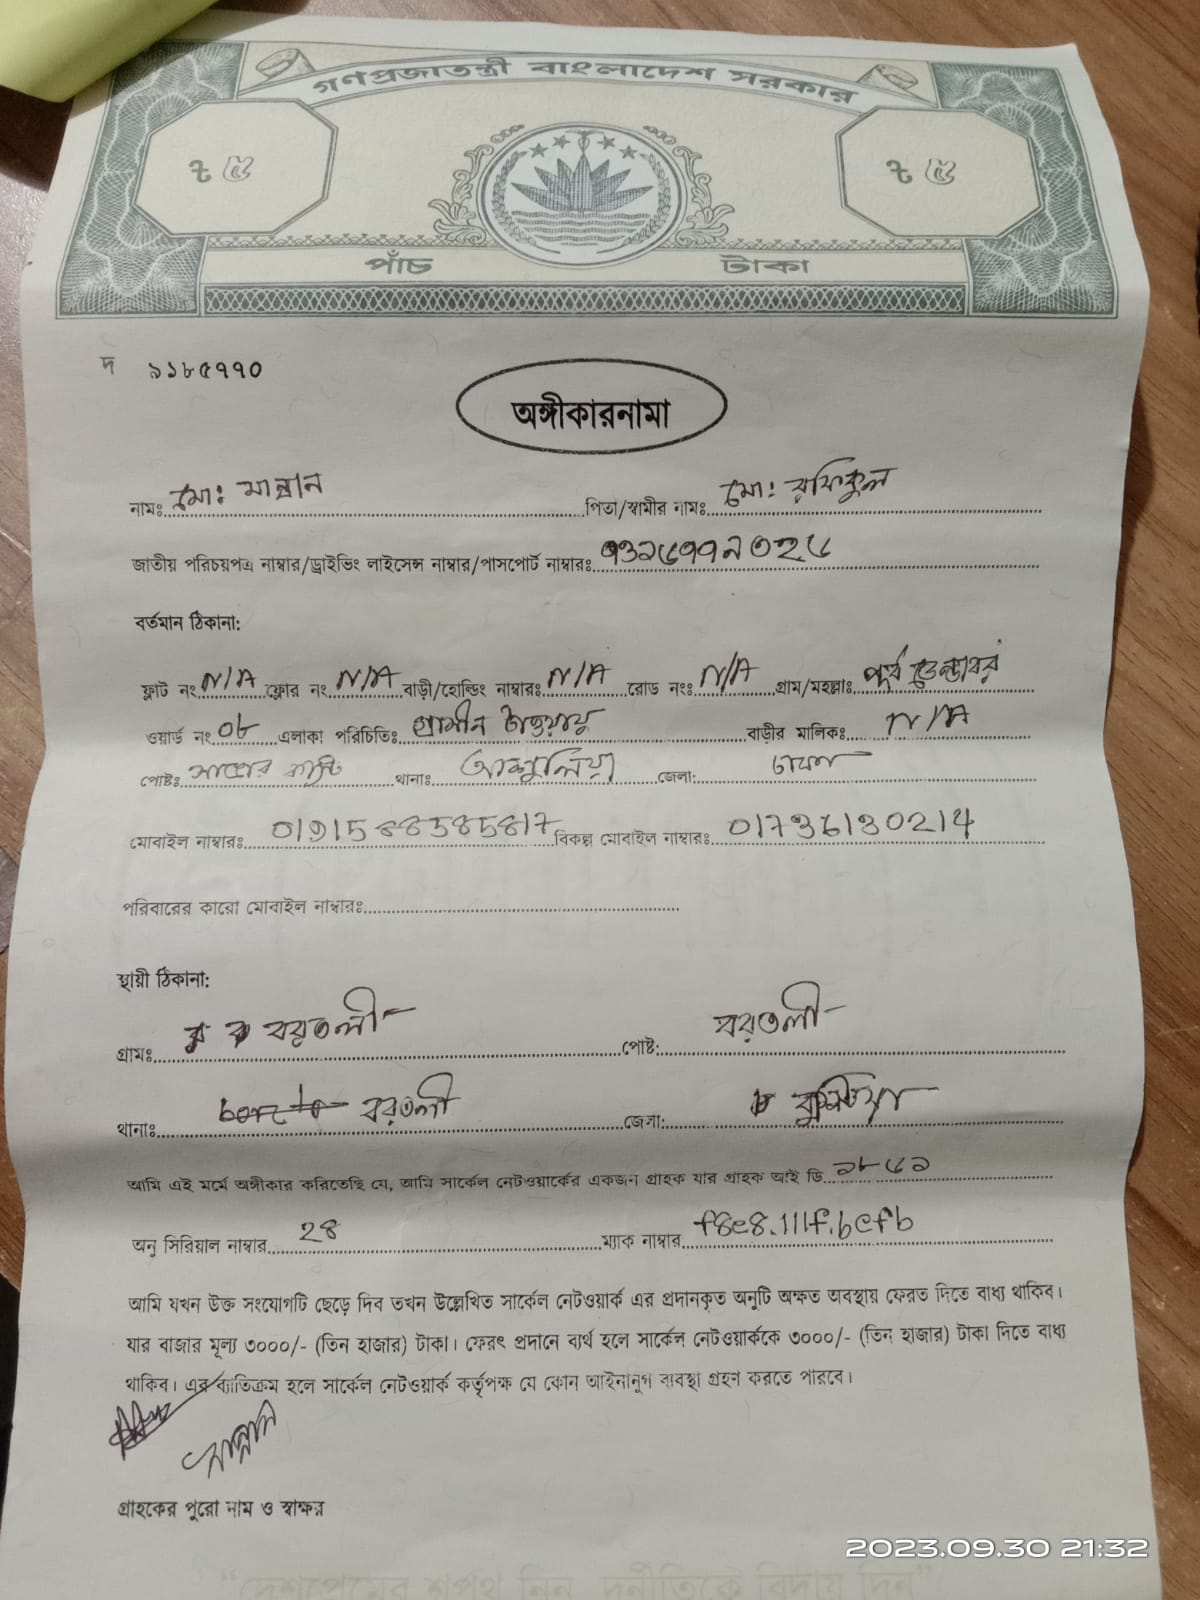 গণপ্রজাতন্ত্রী বাংলাদেশ সরকার
৳ ৫ ৳ ৫
পাঁচ টাকা
দ ৯১৮৫৭৭০
অঙ্গীকারনামা
নামঃ মো: মান্নান পিতা/স্বামীর নামঃ মো: রফিকুল
জাতীয় পরিচয়পত্র নাম্বার/ড্রাইভিং লাইসেন্স নাম্বার/পাসপোর্ট নাম্বারঃ
বর্তমান ঠিকানা:
ফ্লাট নং N/A ফ্লোর নং N/A বাড়ী/হোল্ডিং নাম্বারঃ N/A রোড নংঃ N/A গ্রাম/মহল্লাঃ পূর্ব ডেন্ডাবর
ওয়ার্ড নং ০৮ এলাকা পরিচিতিঃ গ্রামীন টাওয়ার বাড়ীর মালিকঃ N/A
পোষ্টঃ থানাঃ আশুলিয়া জেলা: ঢাকা
মোবাইল নাম্বারঃ বিকল্প মোবাইল নাম্বারঃ 01736130214
পরিবারের কারো মোবাইল নাম্বারঃ
স্থায়ী ঠিকানা:
গ্রামঃ বরতলী পোষ্ট: বরতলী
থানাঃ বরতলী জেলা: কুষ্টিয়া
আমি এই মর্মে অঙ্গীকার করিতেছি যে, আমি সার্কেল নেটওয়ার্কের একজন গ্রাহক যার গ্রাহক আই ডি
অনু সিরিয়াল নাম্বার 28 ম্যাক নাম্বার f8e8.111f.bcfb
আমি যখন উক্ত সংযোগটি ছেড়ে দিব তখন উল্লেখিত সার্কেল নেটওয়ার্ক এর প্রদানকৃত অনুটি অক্ষত অবস্থায় ফেরত দিতে বাধ্য থাকিব।
যার বাজার মূল্য ৩০০০/- (তিন হাজার) টাকা। ফেরৎ প্রদানে ব্যর্থ হলে সার্কেল নেটওয়ার্ককে ৩০০০/- (তিন হাজার) টাকা দিতে বাধ্য
থাকিব। এর ব্যতিক্রম হলে সার্কেল নেটওয়ার্ক কর্তৃপক্ষ যে কোন আইনানুগ ব্যবস্থা গ্রহণ করতে পারবে।
মান্নান
গ্রাহকের পুরো নাম ও স্বাক্ষর
2023.09.30 21:32
"দেশপ্রেমের শপথ নিন, দুর্নীতিকে বিদায় দিন"